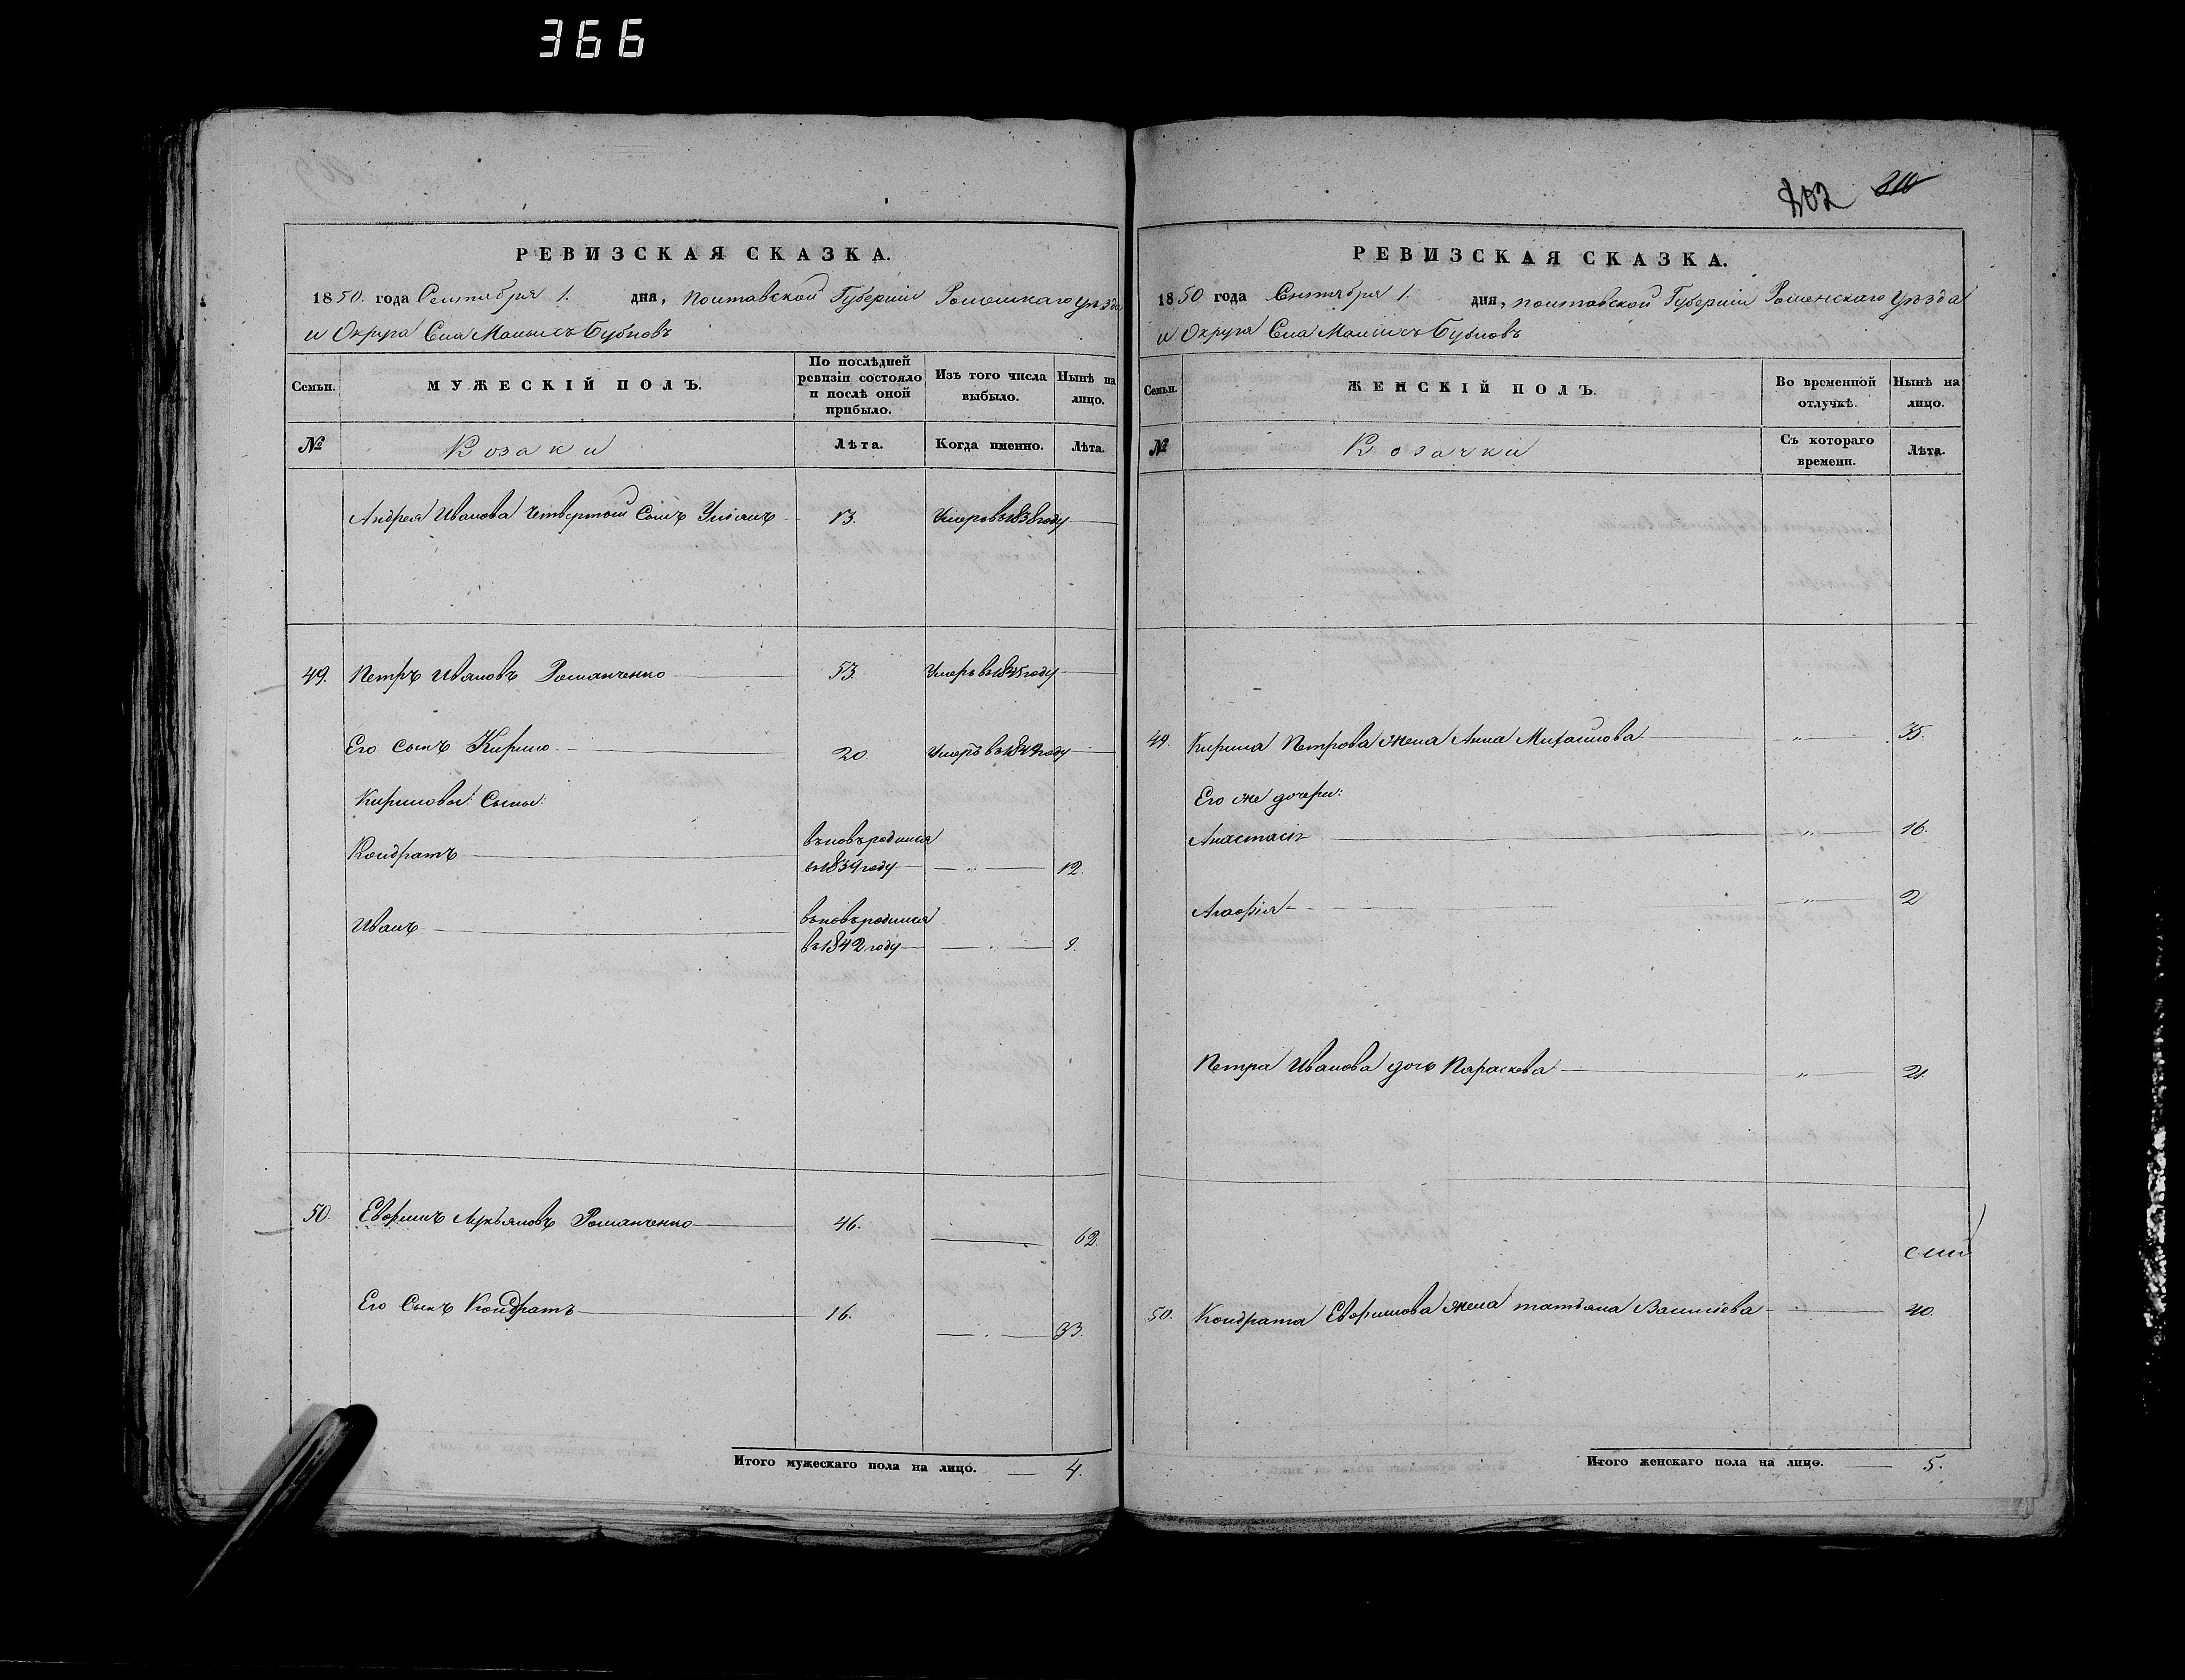 366
802 310
РЕВИЗСКАЯ СКАЗКА.
1850. года Сентября 1. дня, Полтавской Губерніи Роменскаго уѣзда
и Округа Села Малыхъ Бубновъ
Семьи. МУЖЕСКІЙ ПОЛЪ. По послѣдней ревизіи состояло и послѣ оной прибыло. Изъ того числа выбыло. Нынѣ на лицо.
№ Козаки Лѣта. Когда именно. Лѣта.
Андрея Иванова четвертый Сынъ 13. Умеръ въ 1838 году
49. Петръ Ивановъ Романченко 53. Умеръ въ 1845 году
Его сынъ Кирило 20. Умеръ въ 1849 году
Кириловы Сыны:
Кондратъ вновь родился
въ 1839 году — „ — 12.
Иванъ вновь родился
въ 1842 году — „ — 9.
50. Евфимъ Лукьяновъ Романченко 46. 62.
Его Сынъ Кондратъ 16. 33.
Итого мужескаго пола на лицо. 4.
РЕВИЗСКАЯ СКАЗКА.
1850 года Сентября 1. дня, Полтавской Губерніи Роменскаго уѣзда
и Округа Села Малыхъ Бубновъ
Семьи. ЖЕНСКІЙ ПОЛЪ. Во временной отлучкѣ. Нынѣ на лицо.
№ Козачки Съ котораго времени. Лѣта.
49. Кирила Петрова жена Анна Михайлова „ 35.
Его же дочери:
Анастасія „ 16.
Агафія „ 2
Петра Иванова дочь Параскева „ 21.
50. Кондрата Евфимова жена татьяна Василіева „ 40.
Итого женскаго пола на лицо. 5.